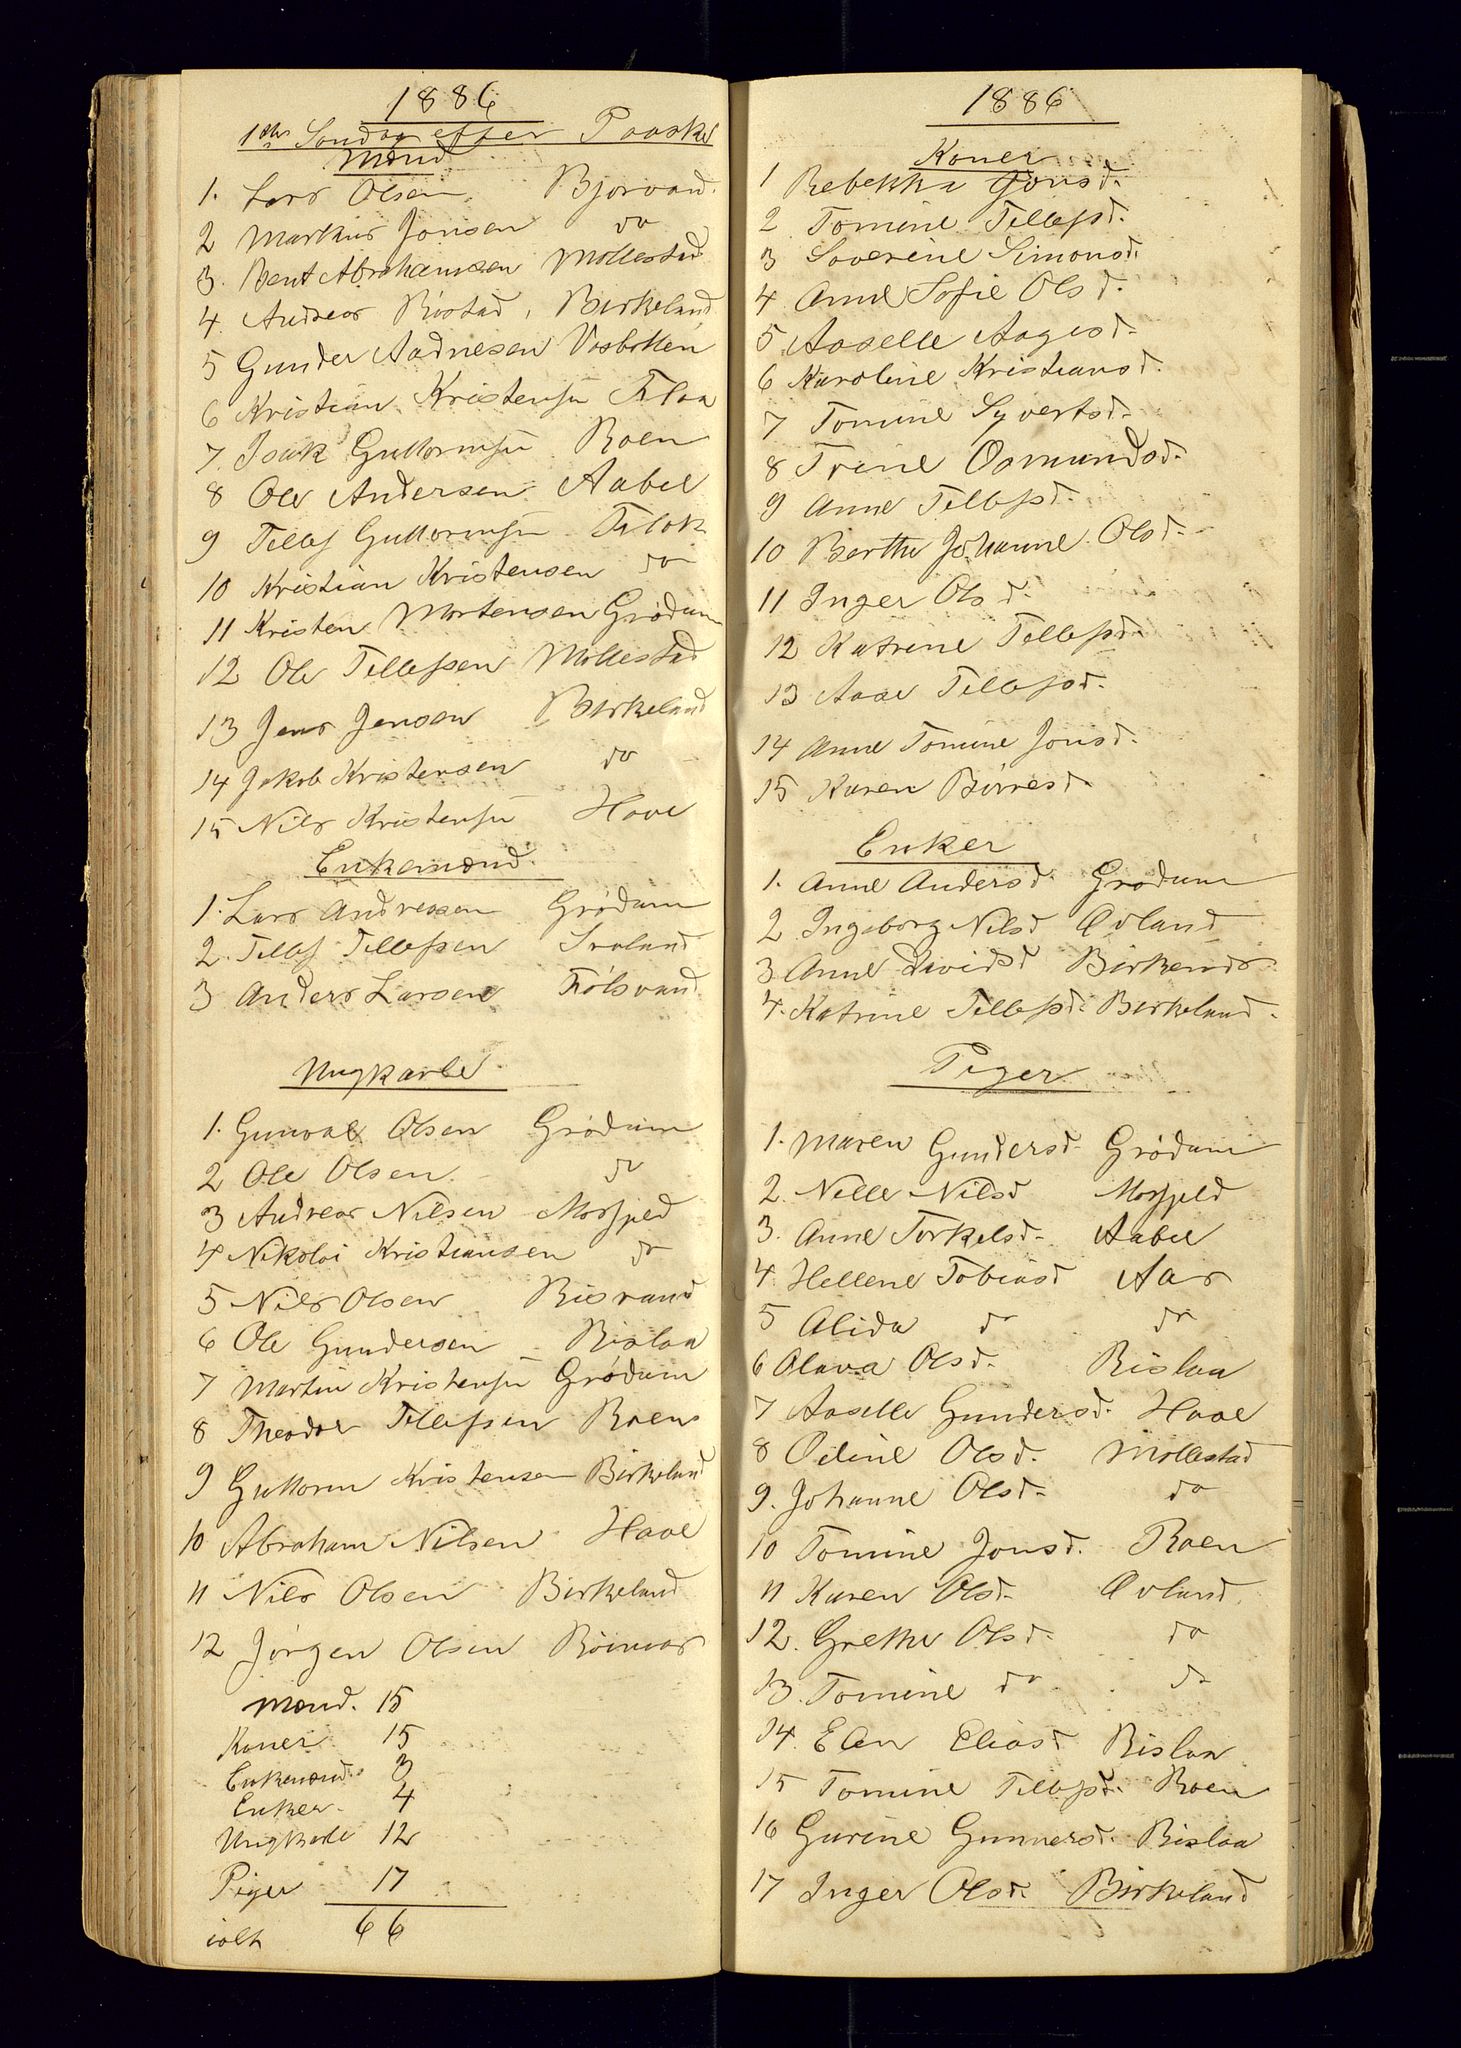 1886
1ste Søndag efter Paaske
Mænd
1. Lars Olsen, Bjorvand.
2 Markus Jonsen do
3. Bent Abrahamsen Mollestad
4. Andreas Birkeland
5 Gunder Aadnesen Vasbotten
6 Kristian Kristensen Flaa
7. Isak Guttormsen Roen
8 Ole Andersen Aabel
9 Tellef Guttormsen Flak
10 Kristian Kristensen do
11 Kristen Mortensen Grødum
12 Ole Tellefsen Mollestad
13 Jens Jensen Birkeland
14 Jakob Kristensen do
15 Nils Kristensen Have
Enkemænd.
1. Lars Andresen Grødum
2. Tellef Tellefsen
3 Anders Larsen Følsvand
Ungkarle
1. Gunvald Olsen Grødum
2 Ole Olsen do
3 Andreas Nilsen Mosfjeld
4 Nikolai Kristiansen do
5 Nils Olsen Risvand
6 Ole Gundersen Rislaa
7 Martin Kristensen Grødum
8 Theodor Tellefsen Roen
9 Guttorm Kristensen Birkeland
10 Abraham Nilsen Have
11 Nils Olsen Birkeland
12 Jørgen Olsen
Mænd. 15
Koner 15
Enkemænd. 3
Enker. 4
Ungkarle 12
Piger 17
ialt 66
1886
Koner
1 Rebekka Jonsd.
2 Tomine Tellefsd.
3 Severine Simonsd.
4 Anne Sofie Olsd.
5 Aaselle Aagesd.
6 Karoline Kristiansd.
7 Tomine Syvertsd.
8 Trine Osmundsd.
9 Anne Tellefsd.
10 Berthe Johanne Olsd.
11 Inger Olsd.
12 Katrine Tellefsd.
13 Aase Tellefsd.
14 Anne Tomine Jonsd.
15 Karen Børresd.
Enker
1. Anne Andersd. Grødum
2 Ingeborg Nilsd Øvland
3 Anne Davidsd Birkenes
4. Katrine Tellefsd. Birkeland.
Piger
1. Maren Gundersd. Grødum
2. Nelle Nilsd Mosfjeld
3. Anne Torkelsd. Aabel
4. Hellene Tobiasd Aas
5 Alida do do
6 Olava Olsd. Rislaa
7 Aaselle Gundersd. Have
8 Odine Olsd. Mollestad
9. Johanne Olsd. do
10 Tomine Jonsd. Roen
11 Karen Olsd. Øvland.
12. Grethe Olsd. do
13. Tomine do do
14. Elen Eliasd Rislaa
15 Tomine Tellefsd. Roen
16 Gurine Gunnersd. Rislaa
17 Inger Olsd. Birkeland